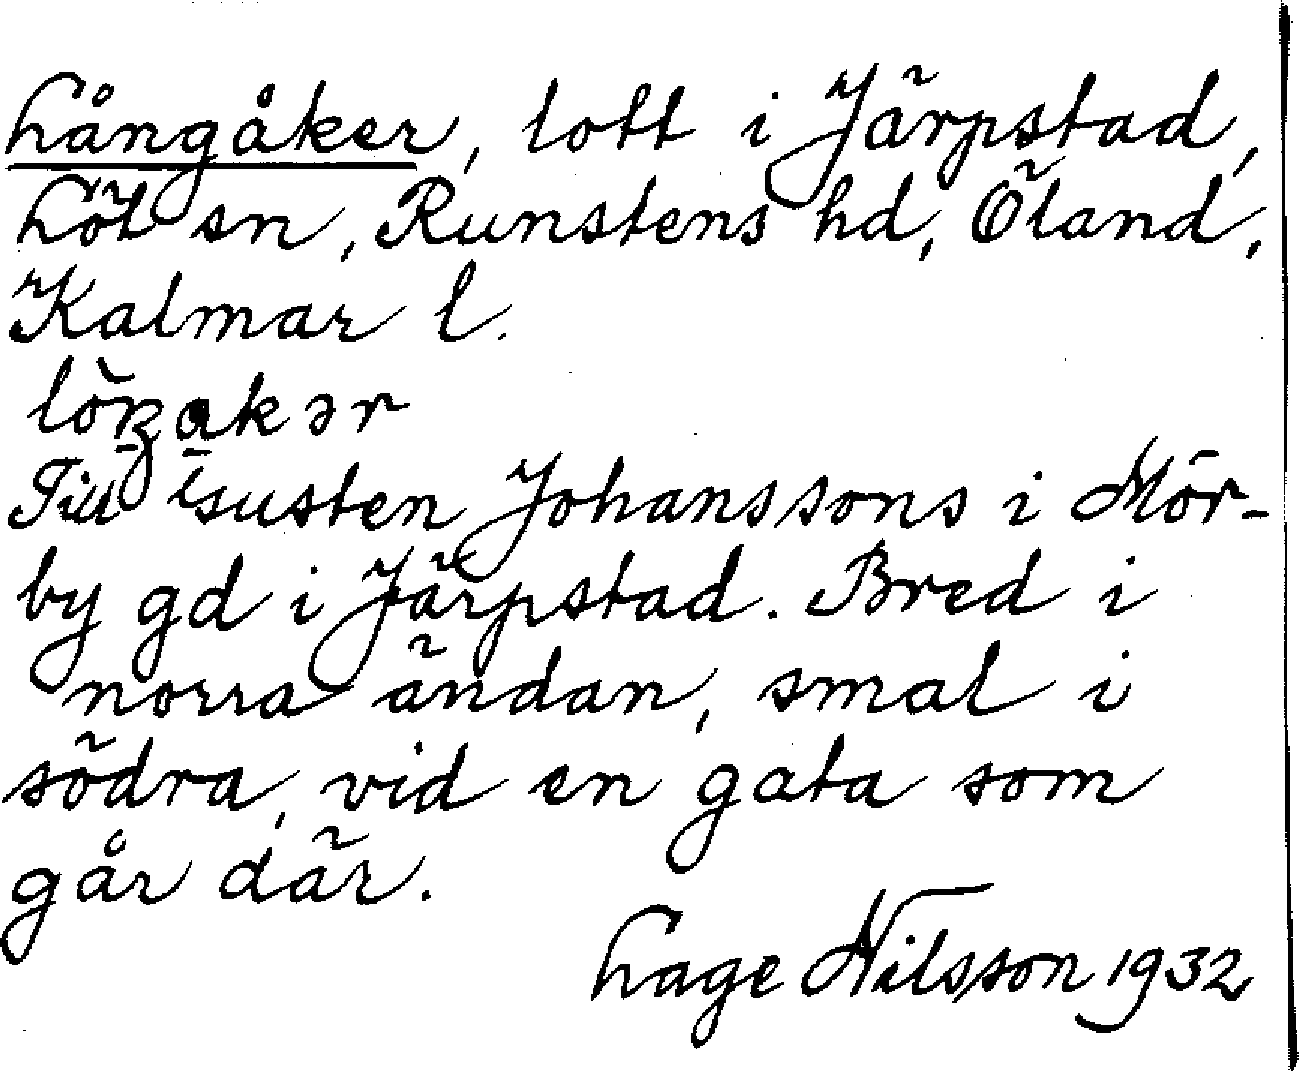 Långåker, lott i Järpstad,
Löt sn, Runstens hd, Öland,
Kalmar l.
Till Gusten Johanssons i Mör-
by gd i Järpstad. Bred i
norra ändan, smal i
södra, vid en gata som
går där.
Lage Nilsson 1932